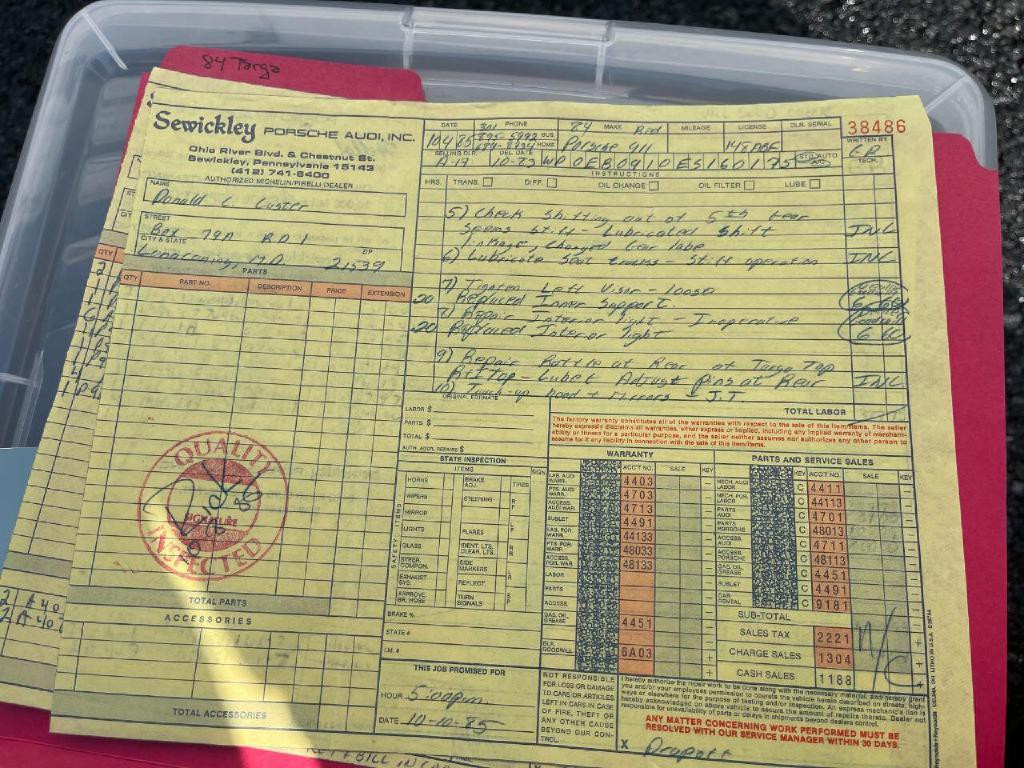 84 Targa
Sewickley PORSCHE AUDI, INC.
Ohio River Blvd. & Chestnut St.
Sewickley, Pennsylvania 15143
(412) 741-6400
AUTHORIZED MICHELIN/PIRELLI DEALER
NAME
Donald L Custer
STREET
Box 79A RD 1
CITY & STATE ZIP
Lonaconing, MD. 21539
DATE 301 PHONE 84 MAKE Red MILEAGE LICENSE DLR. SERIAL
38486
BUS.
HOME Porsche 911
WRITTEN BY
SELLING DLR. DEL. DATE
10-83 WP0EB0910ES160175 STD AUTO A/C
TECH.
INSTRUCTIONS
HRS. TRANS. DIFF. OIL CHANGE OIL FILTER LUBE
5) Check Shifting out of 5th Gear
Seems Stiff - Lubricated Shift INC
linkage, Changed Gear lube
6) Lubricate Seat tracks - Stiff operation INC
7) Tighten Left Visor - loose
.20 Replaced Inner Support.
Repair Interior light - Inoperative
.20 Replaced Interior light
9) Repair Rattle at Rear of Targa Top
- Lube & Adjust Pins at Rear INC
10) Touch-up hood + Mirrors - J.T.
PARTS
QTY PART NO. DESCRIPTION PRICE EXTENSION
ORIGINAL ESTIMATE
LABOR $
PARTS $
TOTAL $
AUTH. ACCPL REPAIRS $
TOTAL LABOR
The factory warranty constitutes all of the warranties with respect to the sale of this item/items. The seller
hereby expressly disclaims all warranties, either express or implied, including any implied warranty of merchant-
ability or fitness for a particular purpose, and the seller neither assumes nor authorizes any other person to
assume for it any liability in connection with the sale of this item/items.
STATE INSPECTION
ITEMS SIGN
SAFETY ITEMS
HORNS BRAKE ADJ. TIRES
WIPERS STEERING
MIRROR
LIGHTS FLARES
GLASS IDENT. LTS. CLEAR. LTS.
STEER. COMPON. SIDE MARKERS
EXHAUST SYS. REFLECT.
APPROVE BR. HOSE TURN SIGNALS
BRAKE %
STATE #
I.M. #
WARRANTY
ACCT NO. SALE KEY
LAB. AUDI WARR. 4403
PTS. AUDI WARR. 4703
ACCESS. AUDI WAR. 4713
SUBLET 4491
LAB. POR. WARR. 44133
PTS. POR. WARR. 48033
ACCESS. POR. WAR. 48133
LABOR
PARTS
ACCESS.
GAS, OIL GREASE 4451
DLR. GOODWILL 6A03
PARTS AND SERVICE SALES
KEY ACCT NO. SALE KEY
MECH. AUDI LABOR C 4411
MECH. POR. LABOR C 44113
PARTS AUDI C 4701
PARTS PORSCHE C 48013
ACCESS. AUDI C 4711
ACCESS. PORSCHE C 48113
GAS, OIL GREASE C 4451
SUBLET C 4491
CAR RENTAL C 9181
SUB-TOTAL
SALES TAX 2221
CHARGE SALES 1304
CASH SALES 1188
N/C
QUALITY
SIGNATURE
INSPECTED
TOTAL PARTS
ACCESSORIES
TOTAL ACCESSORIES
THIS JOB PROMISED FOR
HOUR 5:00 pm
DATE 10-10-85
NOT RESPONSIBLE
FOR LOSS OR DAMAGE
TO CARS OR ARTICLES
LEFT IN CARS IN CASE
OF FIRE, THEFT OR
ANY OTHER CAUSE
BEYOND OUR CON-
TROL.
I hereby authorize the repair work to be done along with the necessary material, and hereby grant
you and/or your employees permission to operate the vehicle herein described on streets, high-
ways or elsewhere for the purpose of testing and/or inspection. An express mechanic's lien is
hereby acknowledged on above vehicle to secure the amount of repairs thereto. Dealer not
responsible for unavailability of parts or delays in shipments beyond dealers control.
ANY MATTER CONCERNING WORK PERFORMED MUST BE
RESOLVED WITH OUR SERVICE MANAGER WITHIN 30 DAYS.
X Dropoff